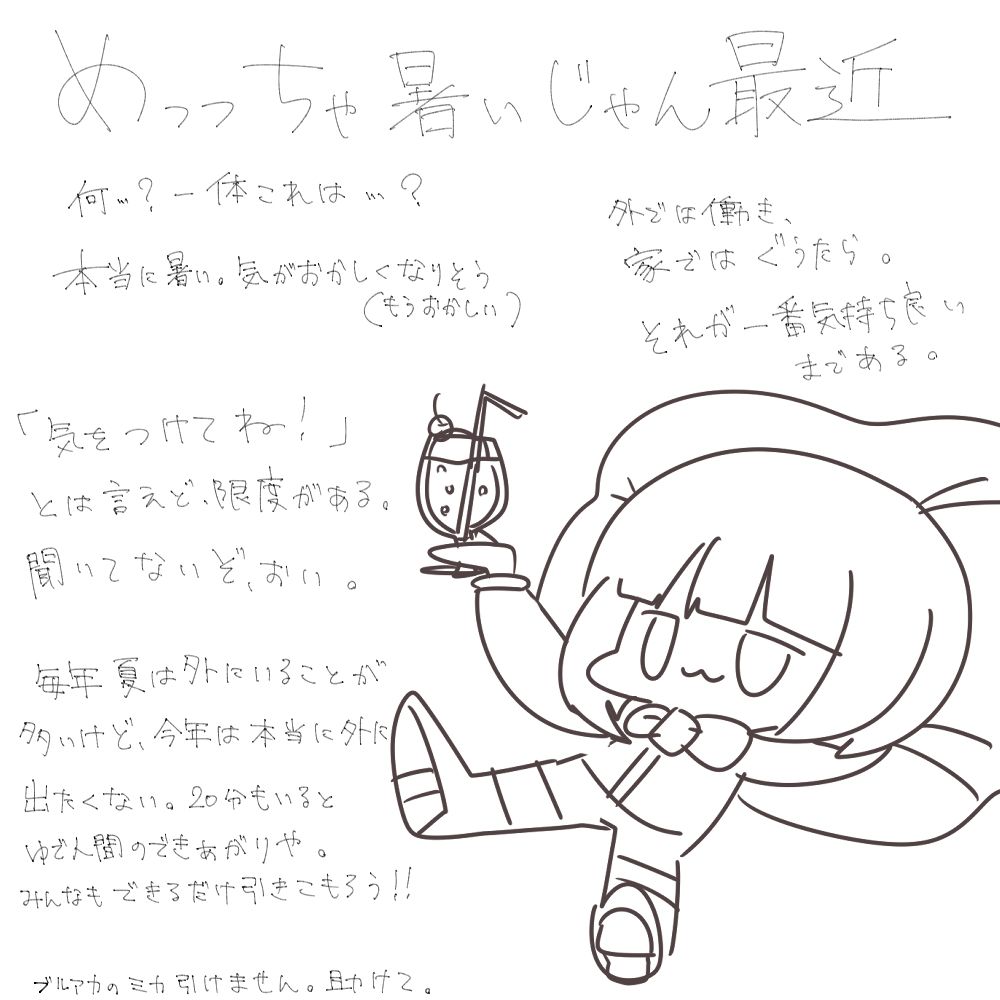 めっっちゃ暑いじゃん最近
何…？一体これは…？
本当に暑い。気がおかしくなりそう
(もうおかしい)
外では働き、
家ではぐうたら。
それが一番気持ち良い
まである。
「気をつけてね！」
とは言えど、限度がある。
聞いてないぞ、おい。
毎年夏は外にいることが
多いけど、今年は本当に外に
出たくない。20分もいると
ゆで人間のできあがりや。
みんなもできるだけ引きこもろう!!
ブルアカのミカ引けません。助けて。